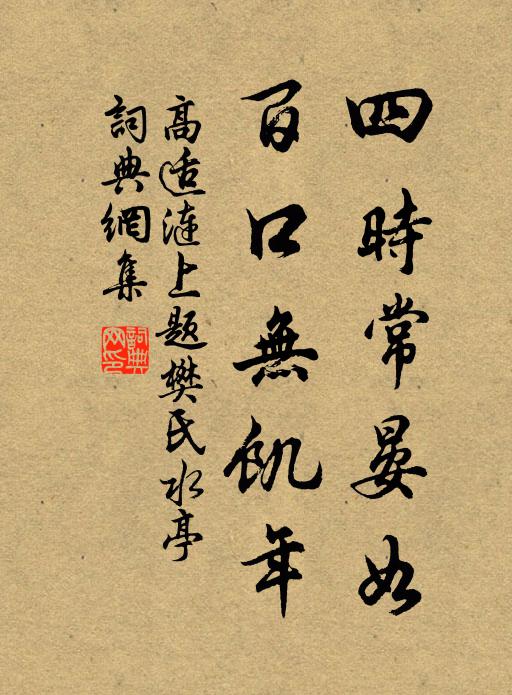 四時常晏如
百口無飢年
高适漣上題樊氏水亭
詞典網集
詞典网印